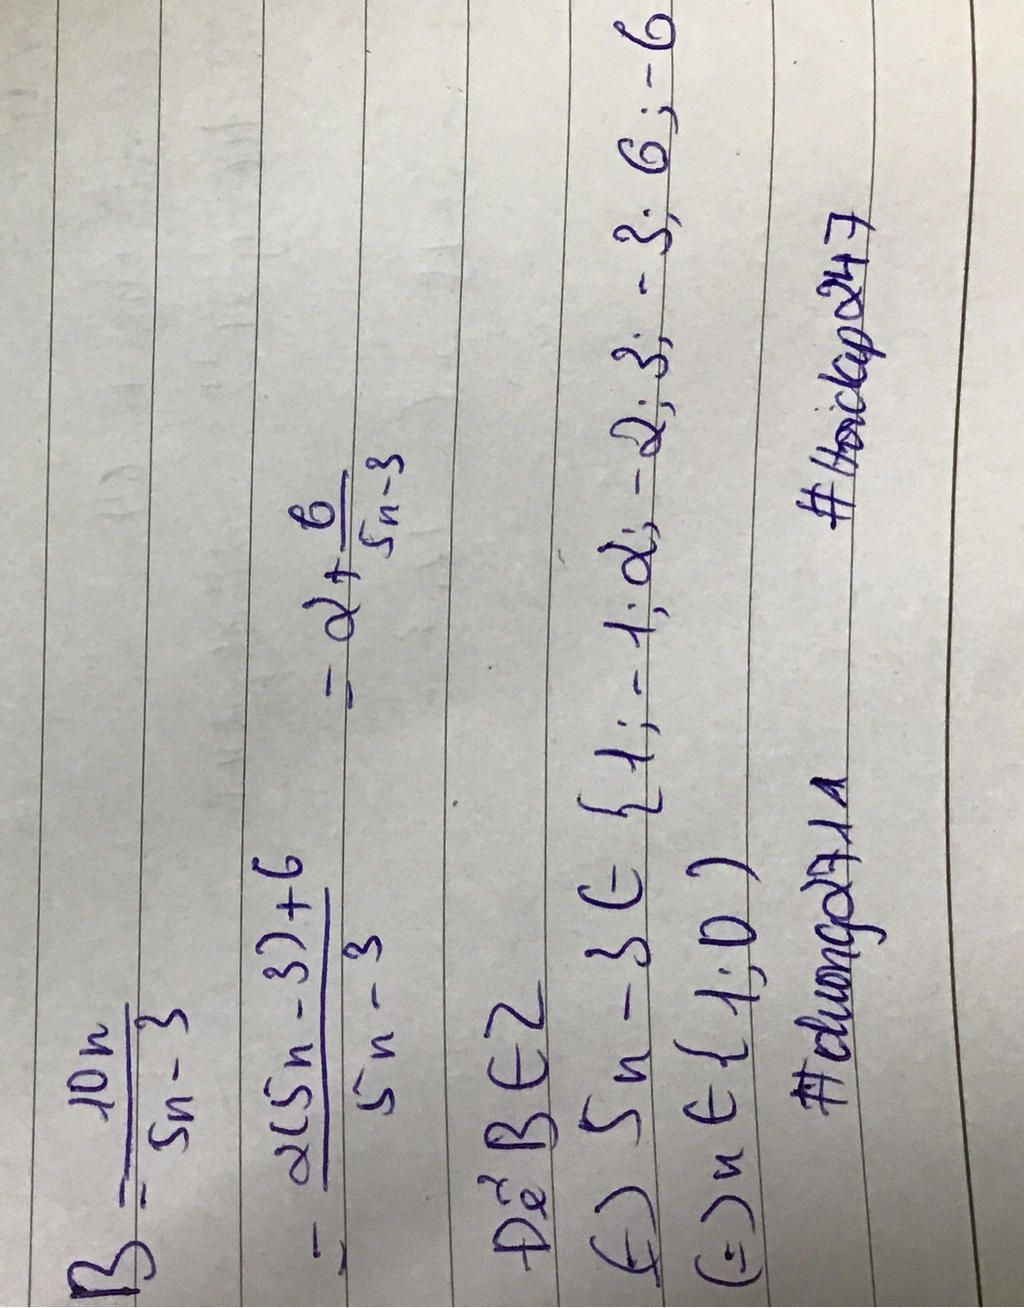 B = 10n / 5n - 3
= 2(5n - 3) + 6 / 5n - 3 = 2 + 6 / 5n - 3
Để B ∈ Z
(=) 5n - 3 ∈ {1; -1; 2; -2; 3; -3; 6; -6
(=) n ∈ {1; 0)
#duong2711 #Hoidap247